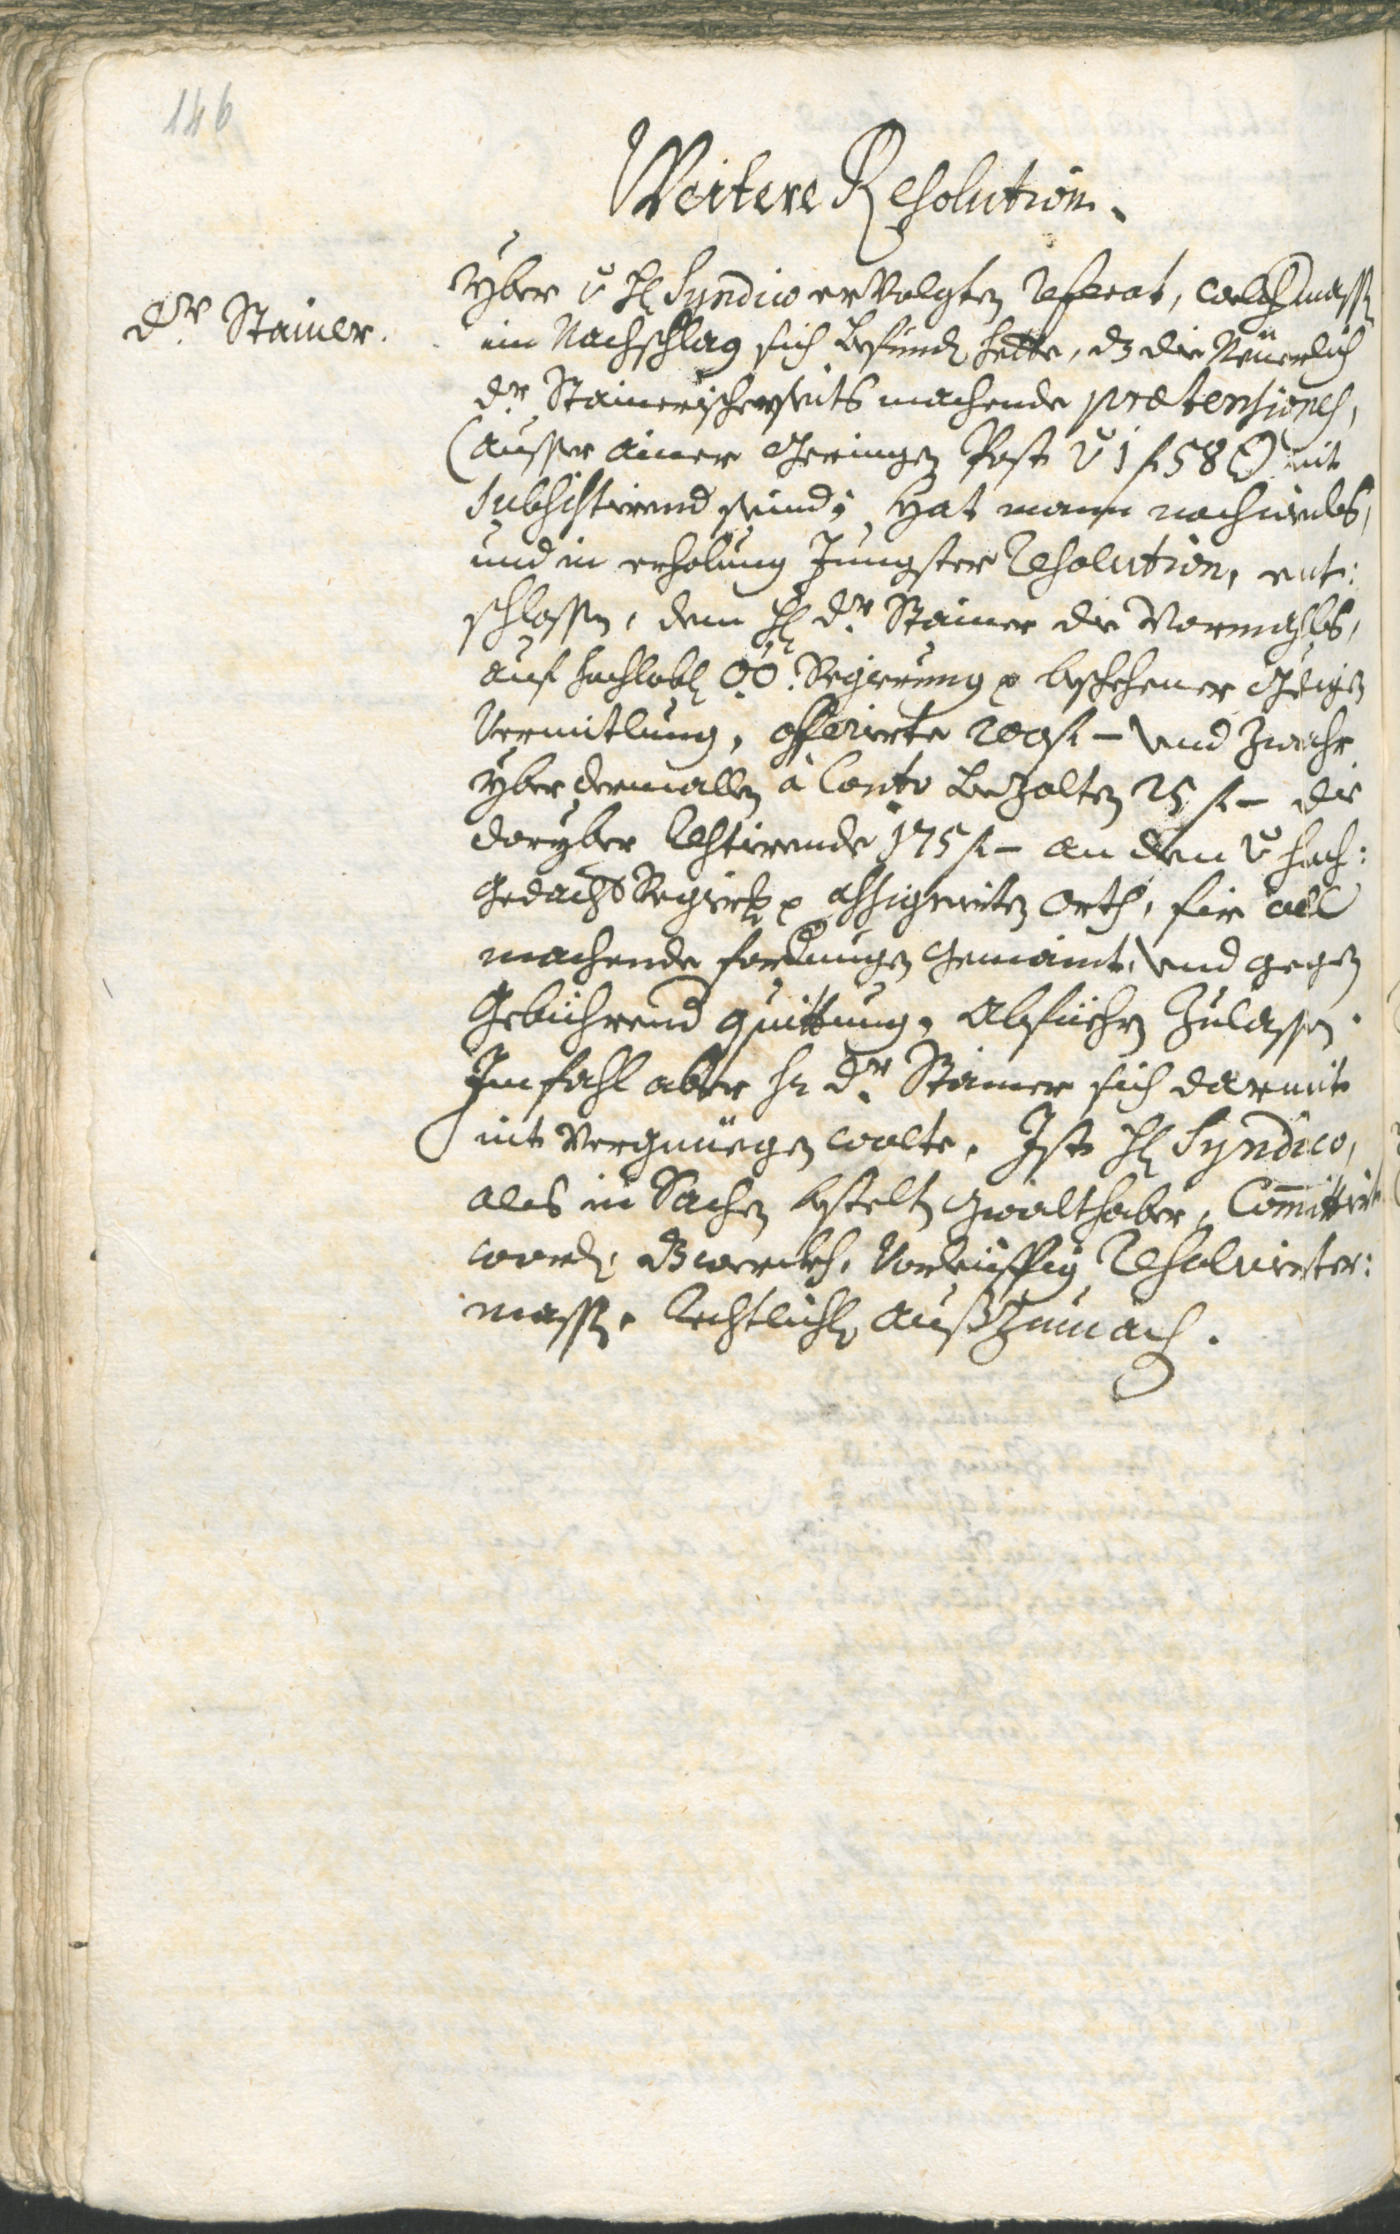 146
Weitere Resolution.
Dr. Stainer.
Yber v. H: Syndico ervolgten Referat, welchmassen
im Nachschlag sich befundn hette, dz die Neuerlich
Dr. Stainerischerseits machende prætensiones,
(ausser ainer Geringen Post v. 1 f 58 x) nit
subsistirend seind; Hat mann nachmals,
und in erholung Jungster Resolution, ent:
schlossen, dem H: Dr. Stainer die Vormahls,
auf hochlobl: OÖ. Regierung p beschehener
Vermitlung, offerirte 200 f – und zwahr
yber dermallen à Conto bezalten 25 f – die
daryber Restirende 175 f – an dem v. hoch:
gedacht Regierg p assignirten Orth, fir all
machende fordrungen gemaint, und gegen
gebührend quittung, Abfüehrn zulassen.
Im fahl aber hr Dr. Stainer sich darmit
nit Vergnüegen wolte, Ist H: Syndico,
als in Sachen bestelten gwalthaber, Committirt
wordn, dz werckh, Vorleuffig Resolvirter:
massen, Rechtlichen auszumachn.